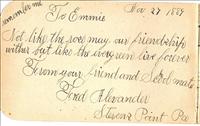 remember me
Nov 27 1887
To Emmie
Not like the rose may our friendship
wither but like the evergreen live forever
From your friend and School mate
Fred Alexander
Stevens Point Pa